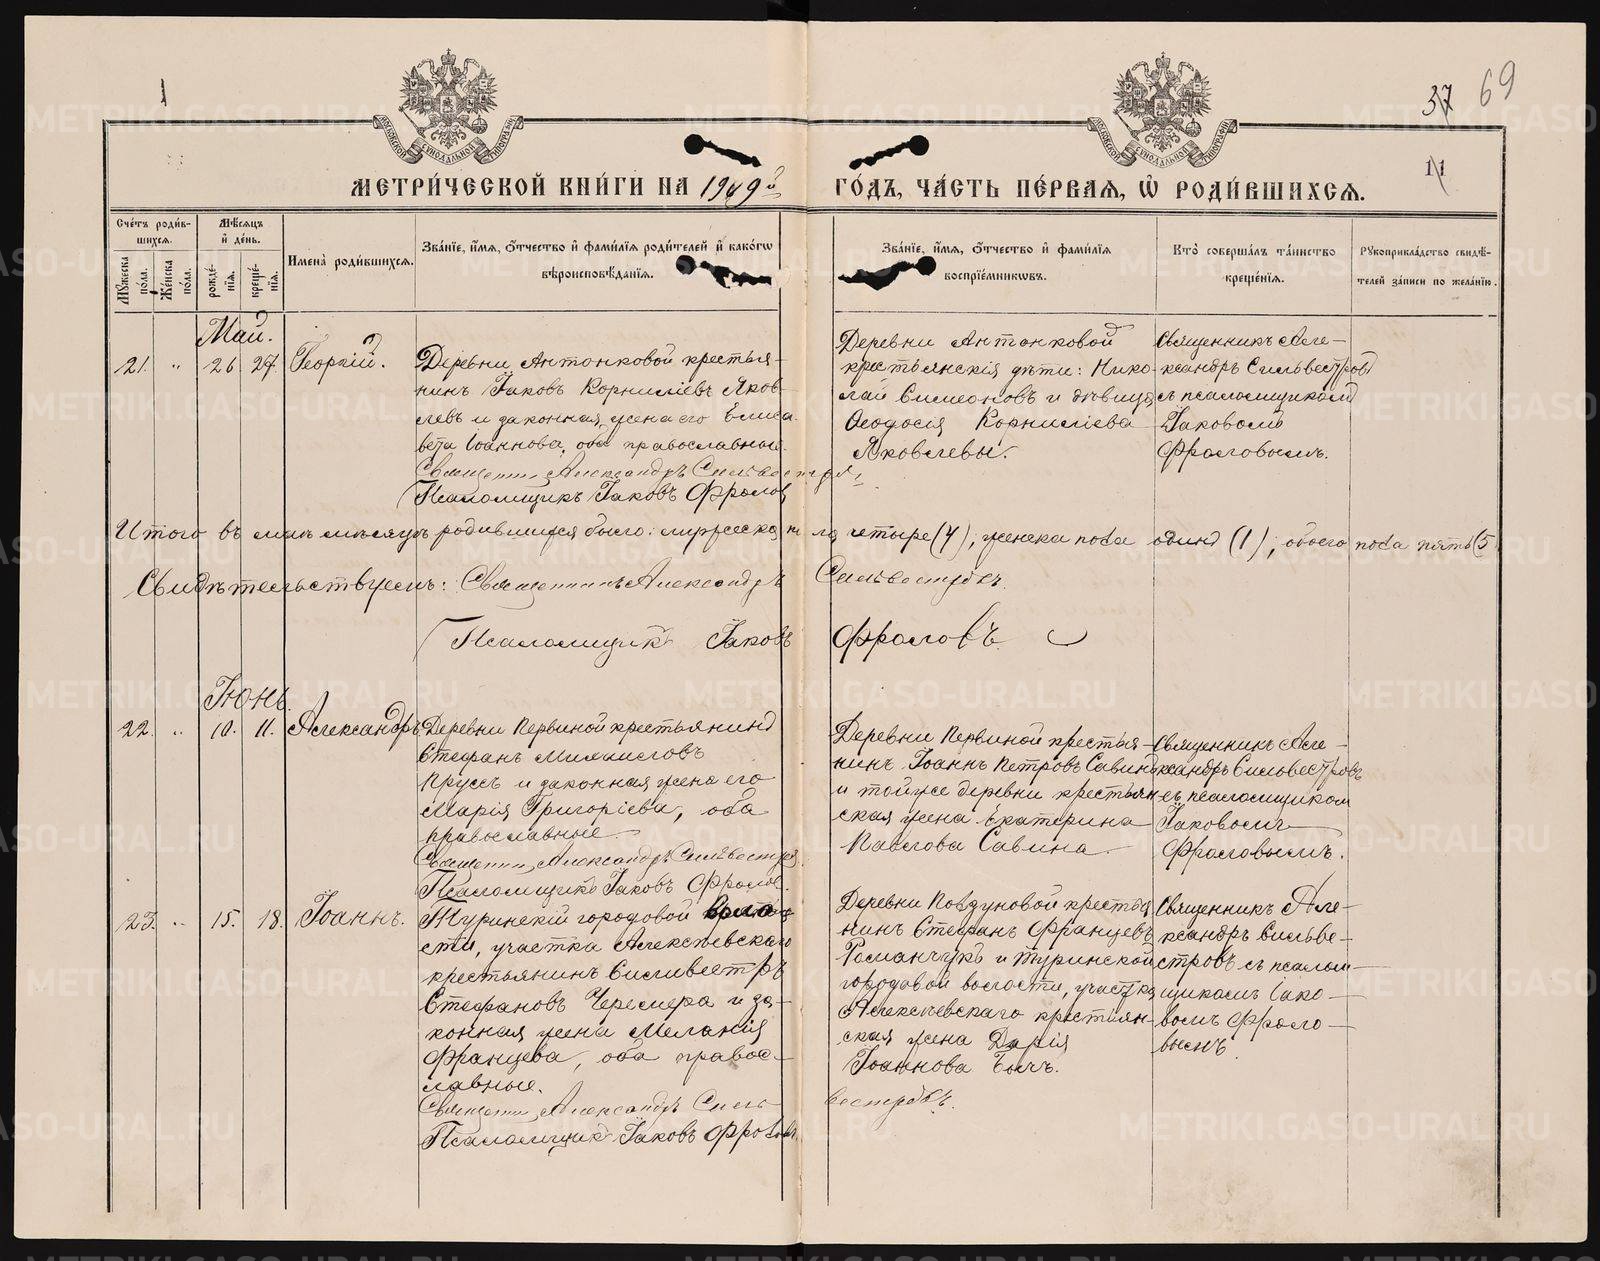 1
37 69
11
МОСКОВСКОЙ СѴНОДАЛЬНОЙ ТИПОГРАФІИ
МОСКОВСКОЙ СѴНОДАЛЬНОЙ ТИПОГРАФІИ
МЕТРИ́ЧЕСКОЙ КНИ́ГИ НА 1909й
ГО́ДЪ, ЧА́СТЬ ПЕ́РВАЯ, Ѡ҆ РОДИ́ВШИХСЯ.
Сче́тъ роди́в-
шихся.
Мꙋжеска по́ла.
Же́нска по́ла.
Мѣ́сяцъ
и҆ де́нь.
рожде́-
нїя.
креще́-
нїя.
Имена̀ роди́вшихся.
Зва́нїе, и҆́мя, ѻ҆́тчество и҆ фами́лїя роди́телей и҆ како́гѡ
вѣроисповѣ́данїя.
Зва́нїе, и҆́мя, ѻ҆́тчество и҆ фами́лїя
воспрїе́мникѡвъ.
Кто̀ соверша́лъ та́инство
креще́нїя.
Рꙋкоприкла́дство свидѣ́-
телей за́писи по жела́нїю.
Май.
21. " 26 27. Георгій.
Деревни Антонковой крестья-
нинъ Іаковъ Корниліевъ Яков-
левъ и законная жена его Елиса-
вета Іоаннова, оба православные.
Священни. Александръ Сильвестров.
Псаломщикъ Іаковъ Фролов
Деревни Антонковой
крестьянскія дѣти: Нико-
лай Симеоновъ и дѣвица
Ѳеодосія Корниліева
Яковлевы.
Священникъ Але-
ксандръ Сильвестров
съ псаломщиком
Іаковомъ
Фроловымъ.
Итого въ маѣ мѣсяцѣ родившихся было: мужеска пола четыре (4), женска пола одинъ (1), обоего пола пять (5
Свидѣтельствуемъ: Священникъ Александръ Сильвестровъ.
Псаломщикъ Іаковъ Фроловъ.
Іюнь.
22. " 10. 11. Александръ
Деревни Первиной крестьянинъ
Стефанъ Михаиловъ
Прусъ и законная жена его
Марія Григоріева, оба
православные.
Священни. Александръ Сильвестров.
Псаломщикъ Іаковъ Фролов.
Деревни Первиной крестья-
нинъ Іоаннъ Петровъ Савинъ
и тойже деревни крестьян-
ская жена Екатерина
Павлова Савина.
Священникъ Але-
ксандръ Сильвестровъ
съ псаломщиком
Іаковомъ
Фроловымъ.
23. " 15. 18. Іоаннъ.
Туринскій городовой воло-
сти, участка Алексѣевскаго
крестьянинъ Сильвестръ
Стефановъ Чермера и за-
конная жена Меланія
Францева, оба правос-
лавные.
Священни. Александръ Силь-
вестровъ.
Псаломщикъ Іаковъ Фроловъ
Деревни Повдуновой крестья
нинъ Стефанъ Францевъ
Романчукъ и Туринской
городовой волости, участка
Алексѣевскаго крестьян-
ская жена Дарія
Іоаннова Бычъ.
Священникъ Але-
ксандръ Сильве-
стровъ съ псалом-
щикомъ Іако-
вомъ Фроло-
вымъ.
METRIKI.GASO-URAL.RU